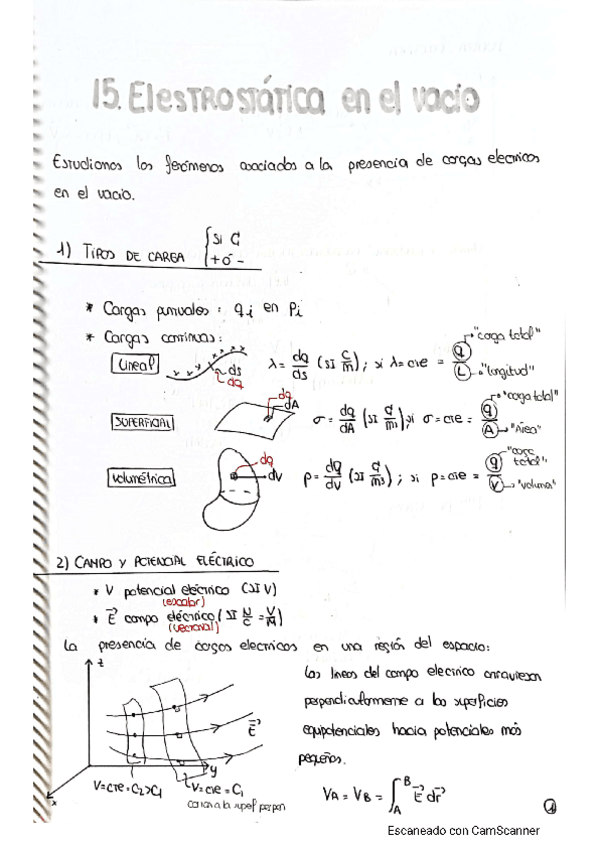 15. ElesTRostática en el vacio
Estudiamos los fenómenos asociados a la presencia de cargas electricas
en el vacio.
1) TIPOS DE CARGA { SI C
+ ó -
* Cargas puntuales : qi en Pi
* Cargas continuas :
Lineal ds dq λ = dq/ds (SI C/m) ; si λ = cte = q/L "carga total" "longitud"
SUPERFICIAL dq dA σ = dq/dA (SI C/m²) ; si σ = cte = q/A "carga total" "Área"
Volumétrica dq dV ρ = dq/dV (SI C/m³) ; si ρ = cte = q/V "carga total" "volumen"
2) CAMPO Y POTENCIAL ELÉCTRICO
* V potencial eléctrico (SI V)
(escalar)
* E⃗ campo eléctrico (SI N/C = V/M)
(vectorial)
La presencia de cargas electricas en una región del espacio:
z
Las lineas del campo electrico atraviesan
perpendicularmente a las superficies
equipotenciales hacia potenciales más
pequeños.
E⃗
y
x
V=cte=C2>C1
V=cte=C1
cortan a la superf perpen
VA = VB = ∫AB E⃗ dr⃗
1
Escaneado con CamScanner